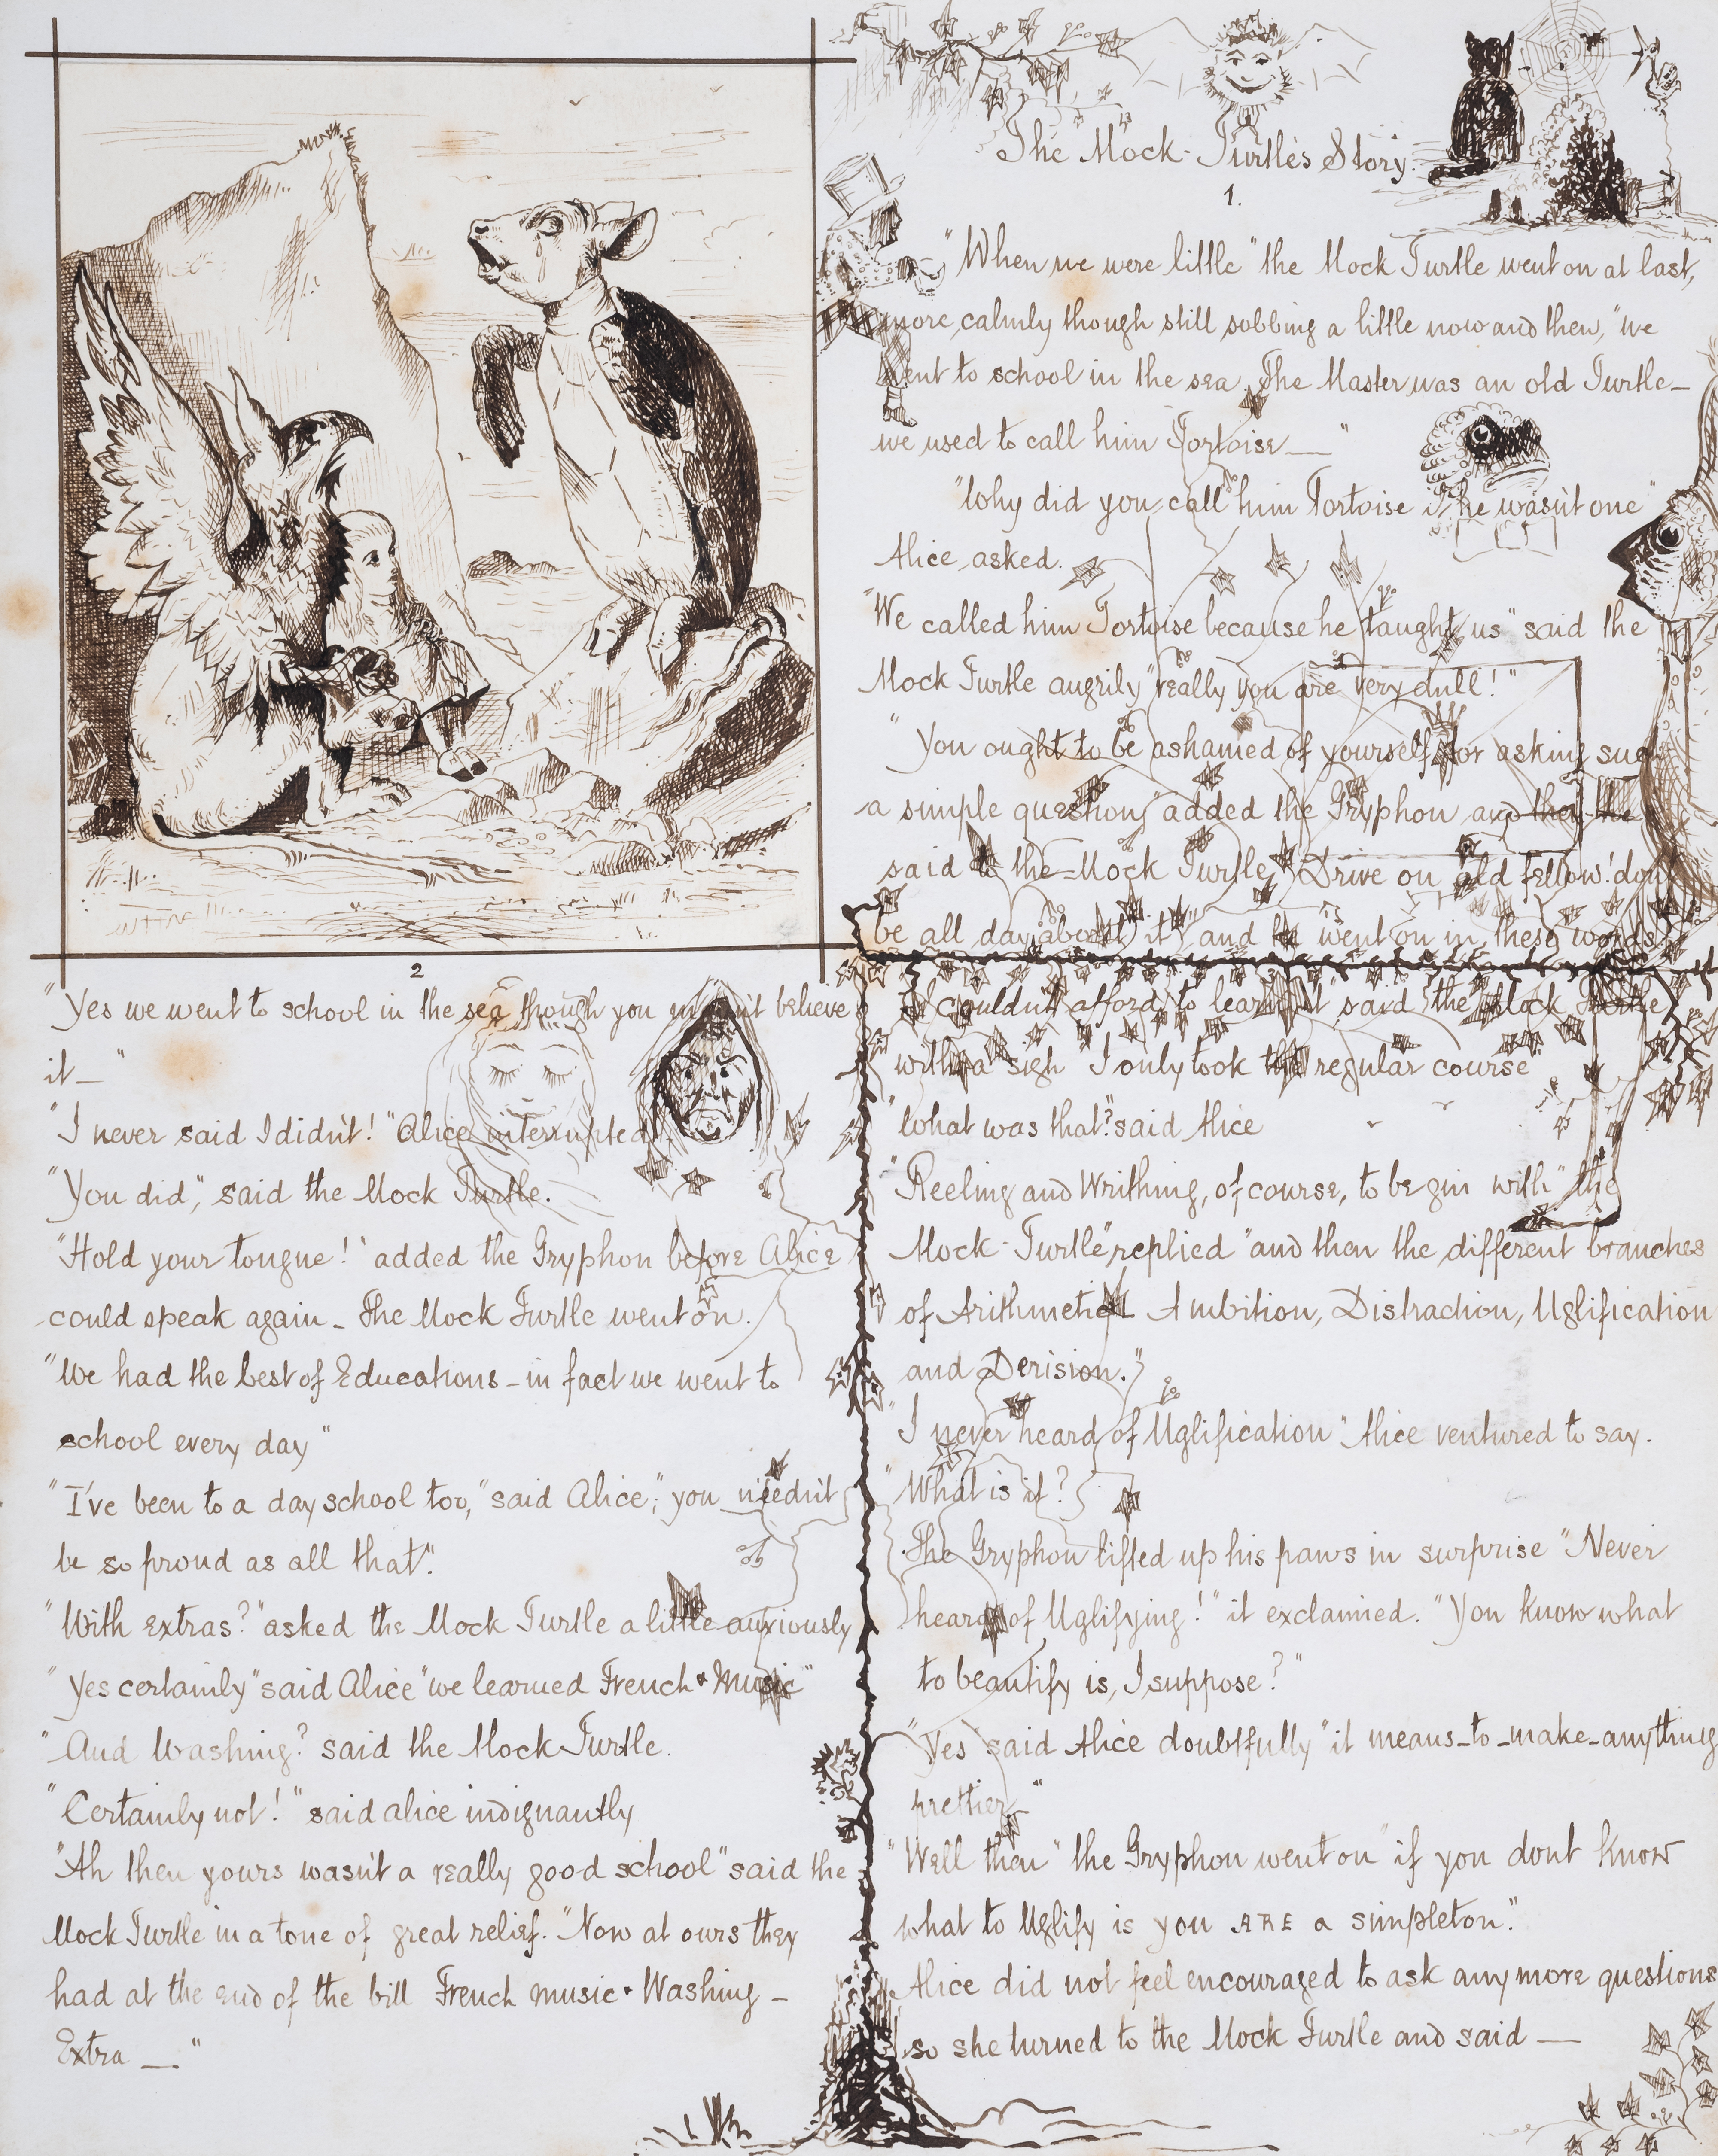 The Mock-Turtle's Story.
1.
"When we were little" the Mock Turtle went on at last,
more calmly though still sobbing a little now and then, "we
went to school in the sea. The Master was an old Turtle—
we used to call him Tortoise—"
"Why did you call him Tortoise if he wasn't one"
Alice asked.
"We called him Tortoise because he taught us" said the
Mock Turtle angrily "really you are very dull!"
"You ought to be ashamed of yourself for asking such
a simple question" added the Gryphon and then the
said to the Mock Turtle, "Drive on old fellow! don't
be all day about it" and he went on in these words
2
"Yes we went to school in the sea though you mightn't believe
it—"
"I never said I didn't!" Alice interrupted.
"You did", said the Mock Turtle.
"Hold your tongue!" added the Gryphon before Alice
could speak again – The Mock Turtle went on.
"We had the best of Educations – in fact we went to
school every day"
"I've been to a day school too," said Alice, "you needn't
be so proud as all that".
"With extras?" asked the Mock Turtle a little anxiously
"Yes certainly" said Alice "we learned French & Music"
"And Washing? said the Mock Turtle.
"Certainly not!" said alice indignantly
"Ah then yours wasn't a really good school" said the
Mock Turtle in a tone of great relief. "Now at ours they
had at the end of the bill French music & Washing –
Extra —"
"I couldn't afford to learn it" said the Mock Turtle
with a sigh "I only took the regular course"
"What was that? said Alice
"Reeling and Writhing, of course, to begin with" the
Mock-Turtle" replied "and then the different branches
of Arithmetic – Ambition, Distraction, Uglification
and Derision."
"I never heard of Uglification" Alice ventured to say.
"What is it?
The Gryphon lifted up his paws in surprise "Never
heard of Uglifying!" it exclaimed. "You know what
to beautify is, I suppose?"
"Yes said Alice doubtfully "it means–to–make–anything
prettier–"
"Well then" the Gryphon went on "if you dont know
what to Uglify is you ARE a simpleton."
Alice did not feel encouraged to ask any more questions
so she turned to the Mock Turtle and said —